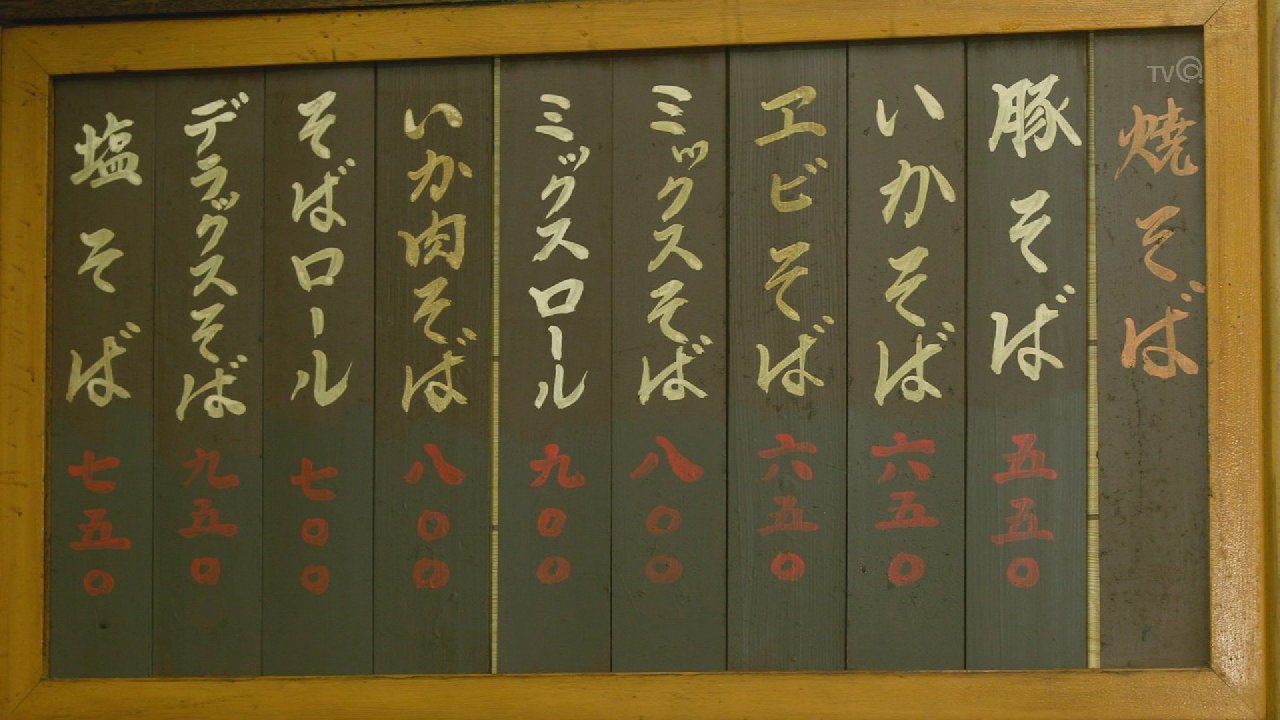 焼そば
豚そば 五五〇
いかそば 六五〇
エビそば 六五〇
ミックスそば 八〇〇
ミックスロール 九〇〇
いか肉そば 八〇〇
そばロール 七〇〇
デラックスそば 九五〇
塩そば 七五〇
TVQ